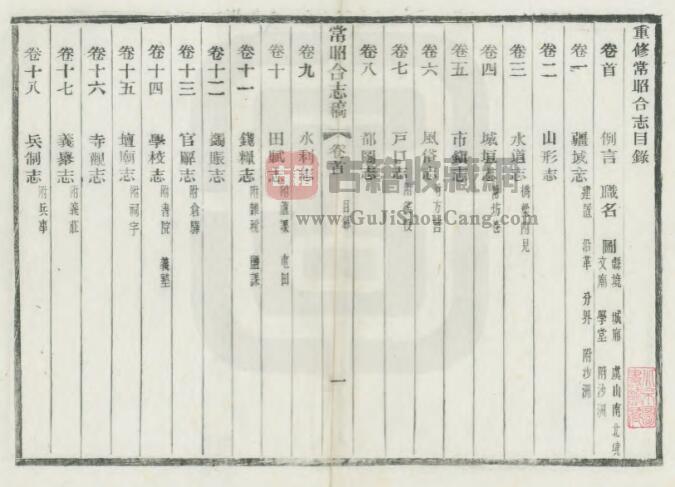 重修常昭合志目錄
卷首 例言 職名 圖 縣境 城廂 虞山南北境 文廟 學堂 附沙洲
卷一 疆域志 建置 沿革 分界 附沙洲
卷二 山形志
卷三 水道志 橋梁附見
卷四 城垣志 附坊巷
卷五 市鎮志
卷六 風俗志 附方言
卷七 戶口志
卷八 都圖志
常昭合志稿 卷首 目錄 一
卷九 水利志
卷十 田賦志 附蘆課 屯田
卷十一 錢糧志 附雜稅 鹽課
卷十二 蠲賑志
卷十三 官廨志 附倉驛
卷十四 學校志 附書院 義塾
卷十五 壇廟志 附祠宇
卷十六 寺觀志
卷十七 義舉志 附義莊
卷十八 兵制志 附兵事
古籍收藏网
www.GuJiShouCang.com